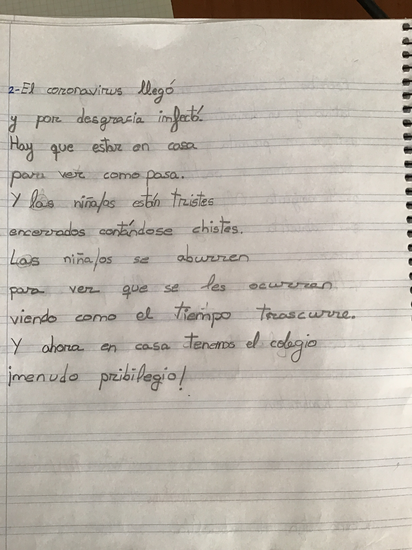 2-El coronavirus llegó
y por desgracia infectó.
Hay que estar en casa
para ver como pasa.
Y las niña/os están tristes
encerrados contándose chistes.
Las niña/os se aburren
para ver que se les ocurren
viendo como el tiempo trascurre.
Y ahora en casa tenemos el colegio
¡menudo pribilegio!